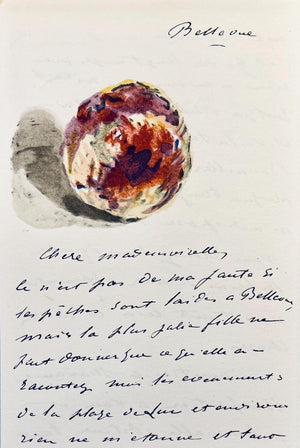 Bellevue
Chère mademoiselle,
ce n'est pas de ma faute si
les pêches sont laides a Bellevue
mais la plus jolie fille ne
peut donner que ce qu'elle a -
Racontez moi les evenements
de la plage de Luc et environs
rien ne m'etonne et sans